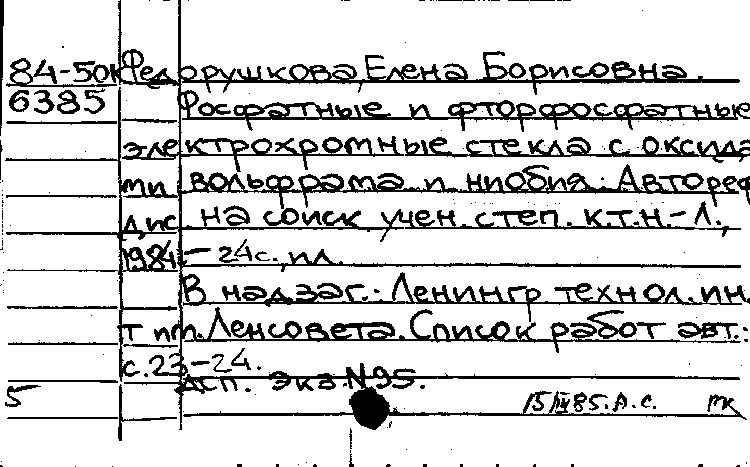 84-50к Федорушкова, Елена Борисовна.
6385 Фосфатные и фторфосфатные
электрохромные стекла с оксида
ми вольфрама и ниобия: Автореф
дис. на соиск. учен. степ. к.т.н.-Л.,
1984.-24с., ил.
В надзаг.: Ленингр технол. ин.
т им. Ленсовета. Список работ авт.:
с.23-24.
Асп. экз №95.
5 15/III 85. А.С. мк